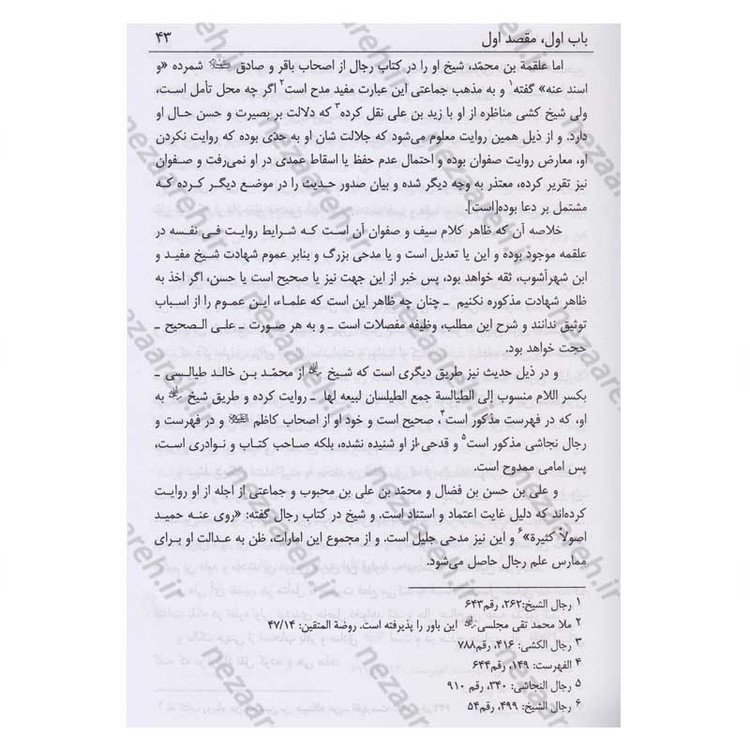 باب اول، مقصد اول ۴۳
اما علقمة بن محمّد، شیخ او را در کتاب رجال از اصحاب باقر و صادق شمرده «و
اسند عنه» گفته۱ و به مذهب جماعتی این عبارت مفید مدح است۲ اگر چه محل تأمل است،
ولی شیخ کشی مناظره از او با زید بن علی نقل کرده۳ که دلالت بر بصیرت و حسن حال او
دارد. و از ذیل همین روایت معلوم می‌شود که جلالت شان او به حدّی بوده که روایت نکردن
او، معارض روایت صفوان بوده و احتمال عدم حفظ یا اسقاط عمدی در او نمی‌رفت و صفوان
نیز تقریر کرده، معتذر به وجه دیگر شده و بیان صدور حدیث را در موضع دیگر کرده که
مشتمل بر دعا بوده[است].
خلاصه آن که ظاهر کلام سیف و صفوان آن است که شرایط روایت فی نفسه در
علقمه موجود بوده و این یا تعدیل است و یا مدحی بزرگ و بنابر عموم شهادت شیخ مفید و
ابن شهرآشوب، ثقه خواهد بود، پس خبر از این جهت نیز یا صحیح است یا حسن، اگر اخذ به
ظاهر شهادت مذکوره نکنیم ـ چنان چه ظاهر این است که علماء، ایـن عمـوم را از اسباب
توثیق ندانند و شرح این مطلب، وظیفه مفصلات است ـ و به هر صورت ـ علی الـصحیح ـ
حجت خواهد بود.
و در ذیل حدیث نیز طریق دیگری است که شیخ از محمّد بـن خالد طیالسی ـ
بکسر اللام منسوب إلی الطیالسة جمع الطیلسان لبیعه لها ـ روایت کرده و طریق شیخ به
او، که در فهرست مذکور است۴، صحیح است و خود او از اصحاب کاظم و در فهرست و
رجال نجاشی مذکور است۵ و قدحی از او شنیده نشده، بلکه صاحب کتاب و نوادری است،
پس امامی ممدوح است.
و علی بن حسن بن فضال و محمّد بن علی بن محبوب و جماعتی از اجله از او روایت
کرده‌اند که دلیل غایت اعتماد و استناد است. و شیخ در کتاب رجال گفته: «روی عنه حمید
اصولاً کثیرة»۶ و این نیز مدحی جلیل است. و از مجموع این امارات، ظن به عدالت او برای
ممارس علم رجال حاصل می‌شود.
۱ رجال الشیخ:۲۶۲، رقم۶۴۳
۲ ملا محمد تقی مجلسی این باور را پذیرفته است. روضة المتقین: ۴۷/۱۴
۳ رجال الکشی: ۴۱۶، رقم۷۸۸
۴ الفهرست: ۱۴۹، رقم۶۴۴
۵ رجال النجاشی: ۳۴۰، رقم ۹۱۰
۶ رجال الشیخ: ۴۹۹، رقم۵۴
nezaareh.ir